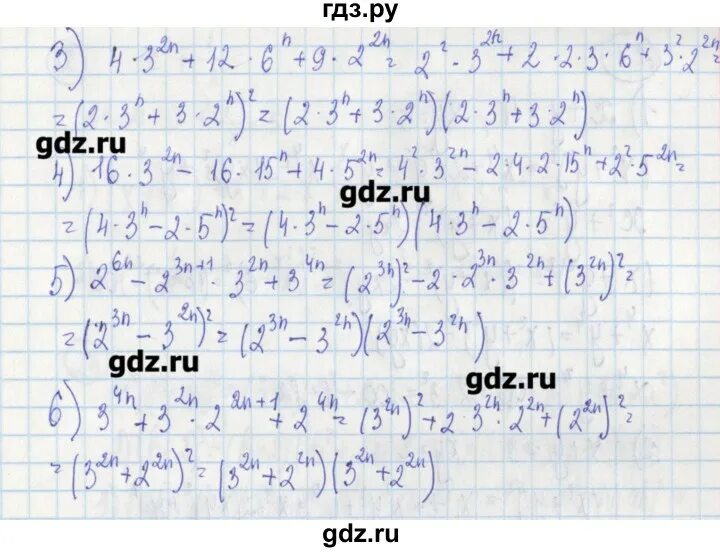 гдз.ру
3) 4·3²ⁿ + 12·6ⁿ + 9·2²ⁿ = 2²·3²ⁿ + 2·2·3·6ⁿ + 3²·2²ⁿ =
= (2·3ⁿ + 3·2ⁿ)² = (2·3ⁿ + 3·2ⁿ)(2·3ⁿ + 3·2ⁿ)
gdz.ru
4) 16·3²ⁿ − 16·15ⁿ + 4·5²ⁿ = 4²·3²ⁿ − 2·4·2·15ⁿ + 2²·5²ⁿ =
gdz.ru
= (4·3ⁿ − 2·5ⁿ)² = (4·3ⁿ − 2·5ⁿ)(4·3ⁿ − 2·5ⁿ)
5) 2⁶ⁿ − 2³ⁿ⁺¹·3²ⁿ + 3⁴ⁿ = (2³ⁿ)² − 2·2³ⁿ·3²ⁿ + (3²ⁿ)² =
= (2³ⁿ − 3²ⁿ)² = (2³ⁿ − 3²ⁿ)(2³ⁿ − 3²ⁿ)
gdz.ru
gdz.ru
6) 3⁴ⁿ + 3²ⁿ·2²ⁿ⁺¹ + 2⁴ⁿ = (3²ⁿ)² + 2·3²ⁿ·2²ⁿ + (2²ⁿ)² =
= (3²ⁿ + 2²ⁿ)² = (3²ⁿ + 2²ⁿ)(3²ⁿ + 2²ⁿ)
gdz.ru